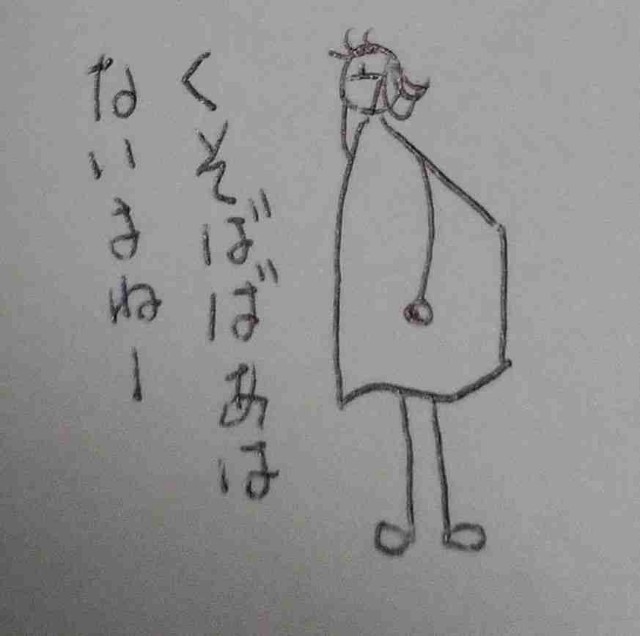 くそばばあは
ないよねー